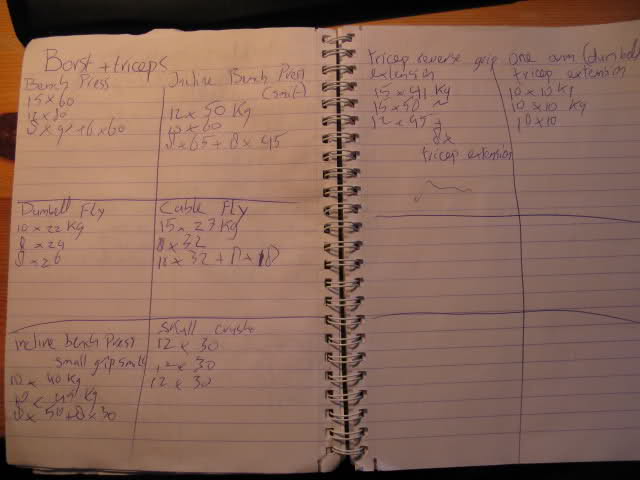 Borst + triceps
Bench Press
15 x 60
12 x 80
8 x 92 + 6 x 60
Incline Bench Press
(smit)
12 x 50 Kg
10 x 60
8 x 65 + 8 x 45
Dumbell Fly
10 x 22 Kg
8 x 24
8 x 26
Cable Fly
15 x 27 Kg
8 x 32
10 x 32 + 8 x 18
incline bench Press
small grip smit
10 x 40 Kg
10 x 45 Kg
8 x 50 + 8 x 30
skull
12 x 30
12 x 30
12 x 30
tricep reverse grip
extension
15 x 41 Kg
15 x 50
12 x 45 +
8x
tricep extension
one arm (dumbel
tricep extension
10 x 10 Kg
10 x 10 Kg
10 x 10